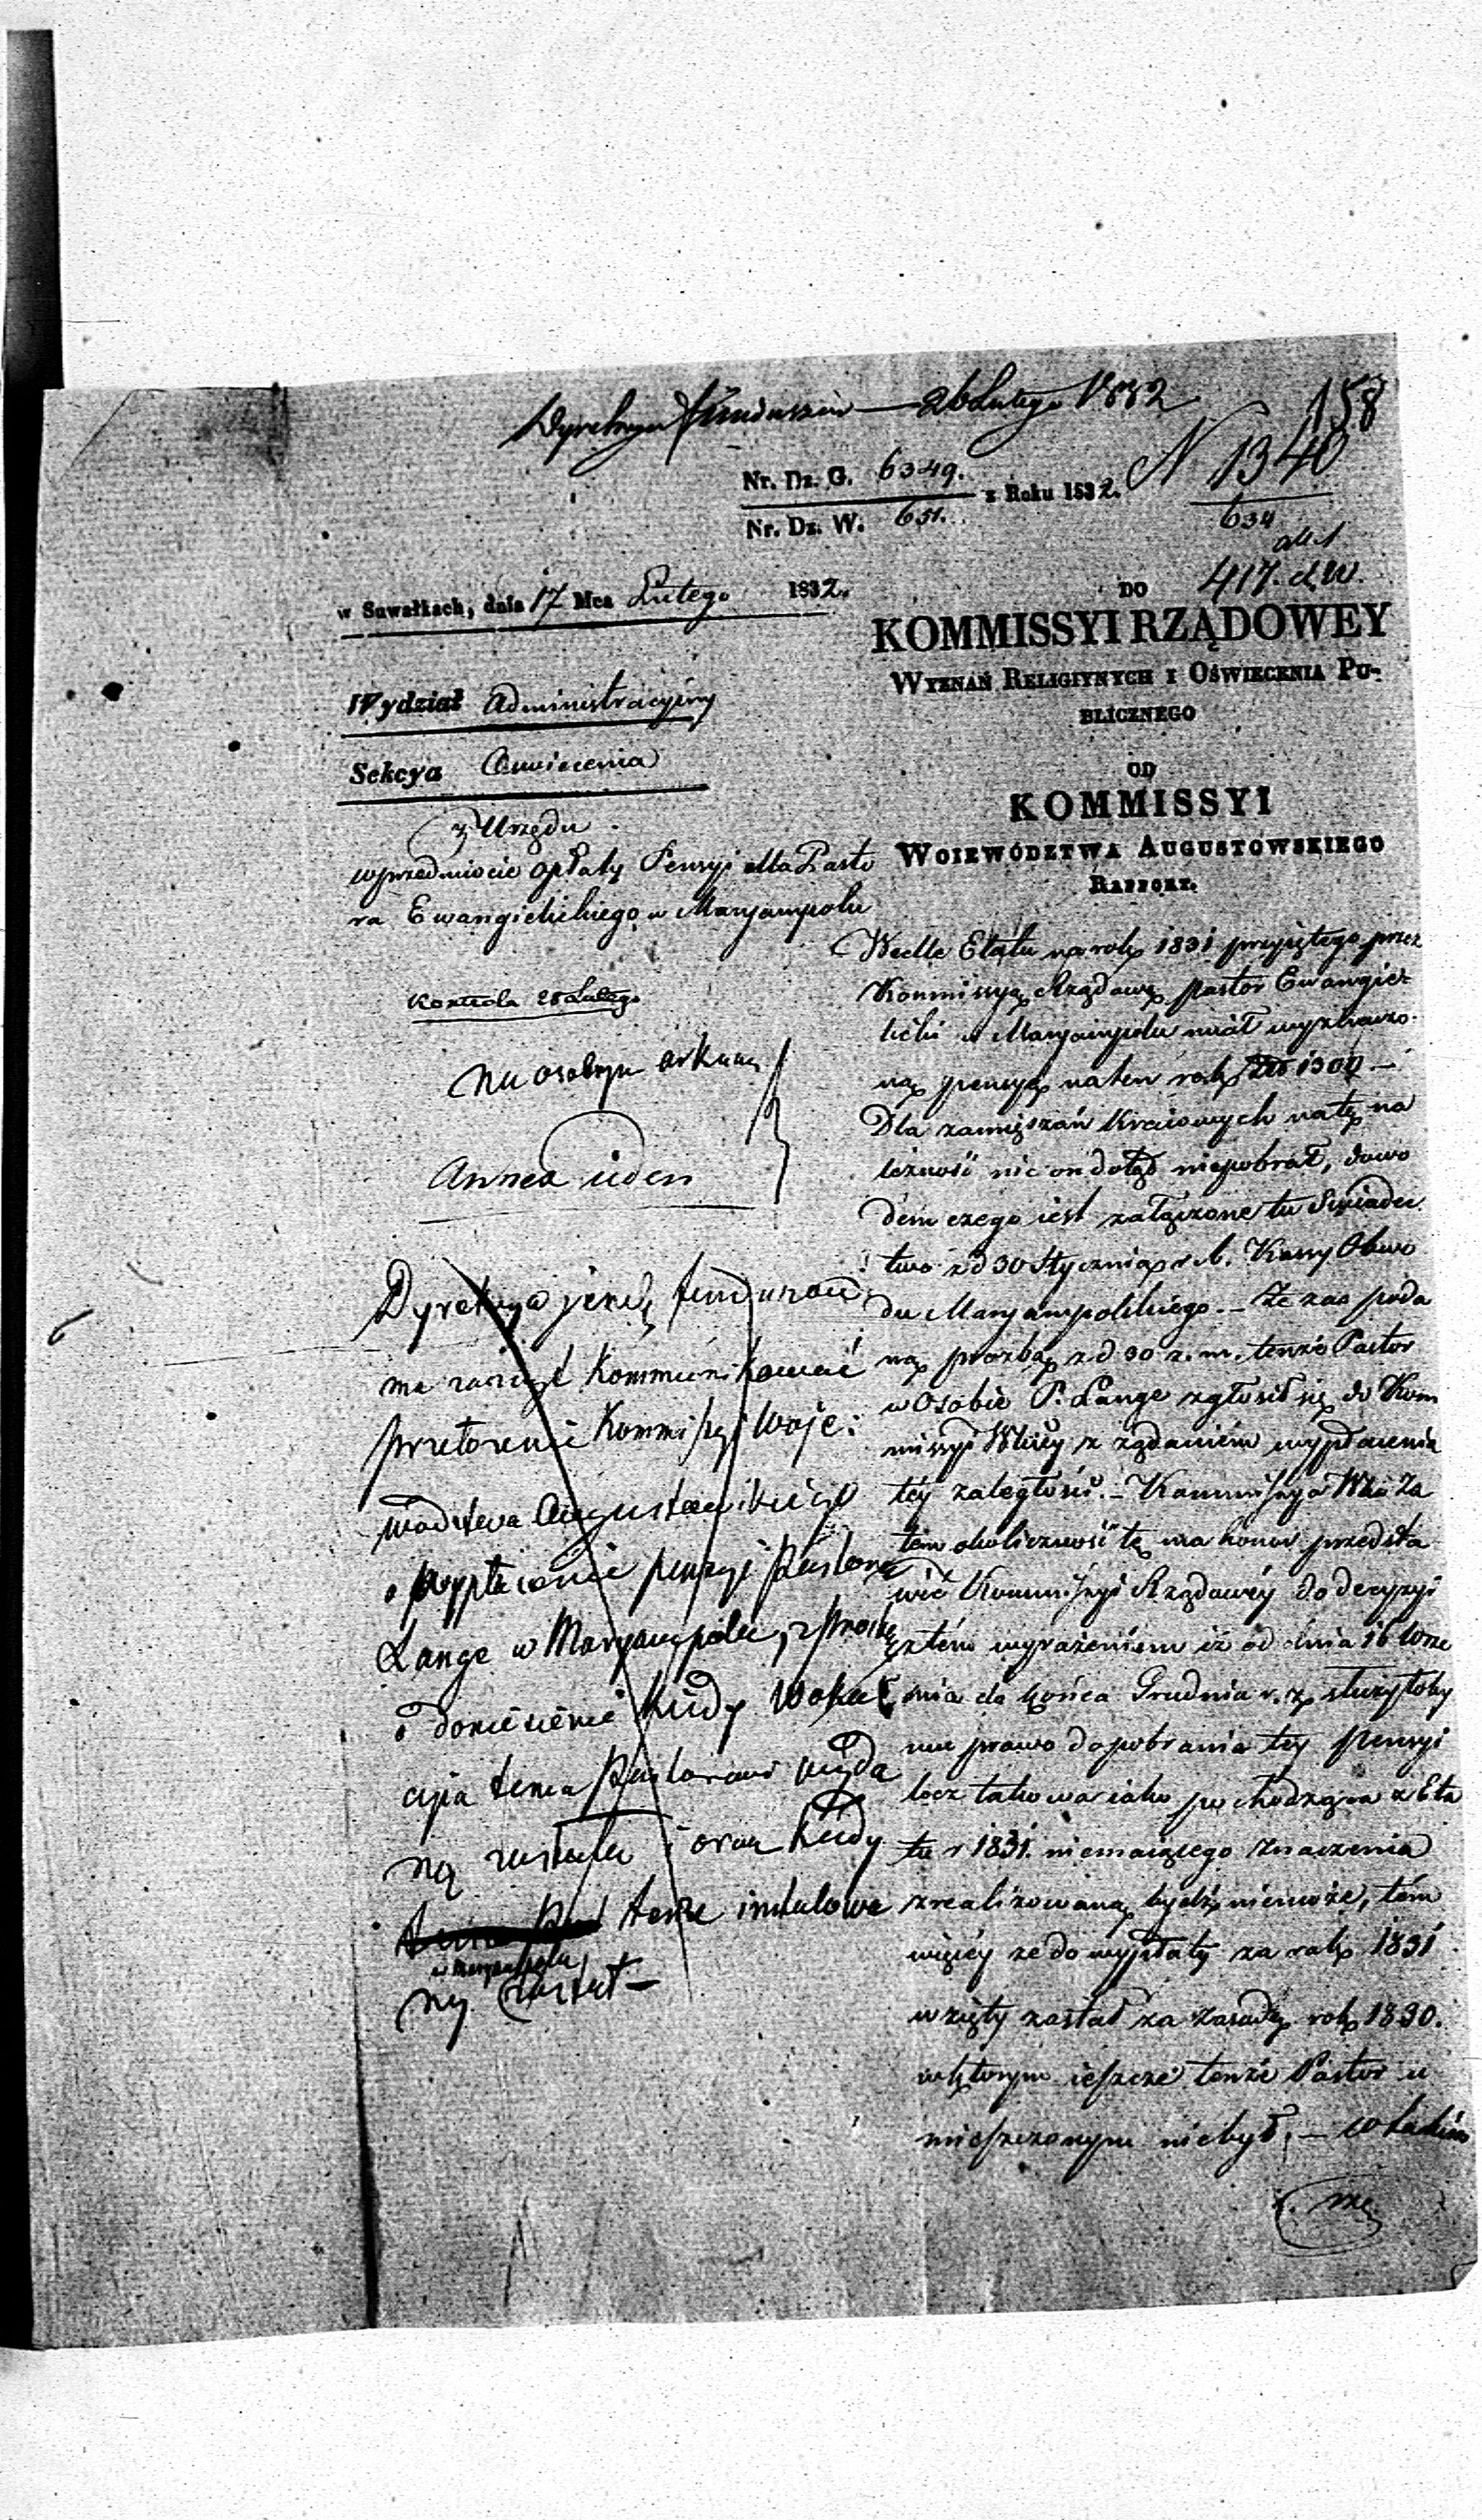 Dyrekcya Funduszów — 26 Lutego 1832
158
Nr. Dz. G. 6349.
Nr. Dz. W. 651.
z Roku 1832.
N 1340
634
417. d.W.
w Suwałkach, dnia 17 Mca Lutego 1832.
Wydział Administracyjny
Sekcya Oswiecenia
z Urzędu
wprzedmiocie opłaty Pensyi dla Pasto
ra Ewangielickiego w Maryampolu
Kontrola 28 Lutego
na osobnym arkuszu
Annea
Dyrekcya jeneł. funduszów
ma zaszczyt kommunikować
przełożenie Kommissyi Woje:
wództwa Augustowskiego
o wypłacenie pensyi Pastora
Lange w Maryampolu, z prośbą
o doniesienie kiedy woka
cyia temu Pastorowi wyda
ną została i oraz kiedy
tenże instalowa
w Maryampolu
ny został —
DO
KOMMISSYI RZĄDOWEY
WYZNAŃ RELIGIYNYCH I OŚWIECENIA PU-
BLICZNEGO
OD
KOMMISSYI
WOIEWÓDZTWA AUGUSTOWSKIEGO
RAPPORT.
Wedle Etatu na rok 1831 przyiętego przez
Kommissyą Rządową pastor Ewangie-
licki w Maryampolu miał wyznaczo-
ną pensyą na ten rok 1300 —
Dla zamięszań kraiowych na tę na
leżność nic on dotąd niepobrał, dowo
dem czego iest załączone tu Swiadec
two z d 30 Stycznia r. b. Kassy Obwo
du Maryampolskiego. — Że zas poda
ną prozbą z d 30 z. m. tenże Pastor
w Osobie P. Lange zgłosił się do Kom
missyi Wttwy z żądaniem wypłacenia
téy zaległości. — Kommissya Wka za
tém okoliczność tę ma honor przedsta
wić Kommissyi Rządowéy do decyzyi
z tém wyrażeniem iż od dnia 16 Wrze
śnia do końca Grudnia r. z. służyłoby
mu prawo do pobrania téy pensyi
lecz takowa iako pochodząca z Eta
tu r 1831. niemaiącego znaczenia
zrealizowaną bydź niemoże, tém
więcéy że do wypłaty za rok 1831
wzięty został za zasadę rok 1830.
w którym ieszcze tenże Pastor u
mieszczonym niebył. — w takim